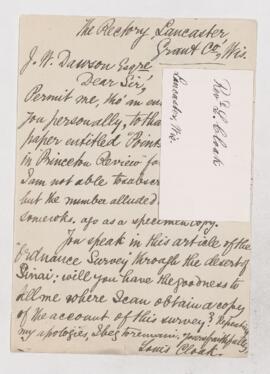 The Rectory, Lancaster
Grant Co., Wis.
J. W. Dawson Esqre
Dear Sir,
Permit me, tho' an en
you personally, to tha
paper entitled "Points
in Princeton Review" fo
I am not able to subscr
but the number alluded
some wks. ago as a specimen copy.
You speak in this article of the
"Ordnance Survey through the desert of
Sinai"; will you have the goodness to
tell me where I can obtain a copy
of the account of this survey? Repeating
my apologies, I beg to remain, yours faithfully,
Louis Cloak.
Revd L. Cloak
Lancaster, Wis.